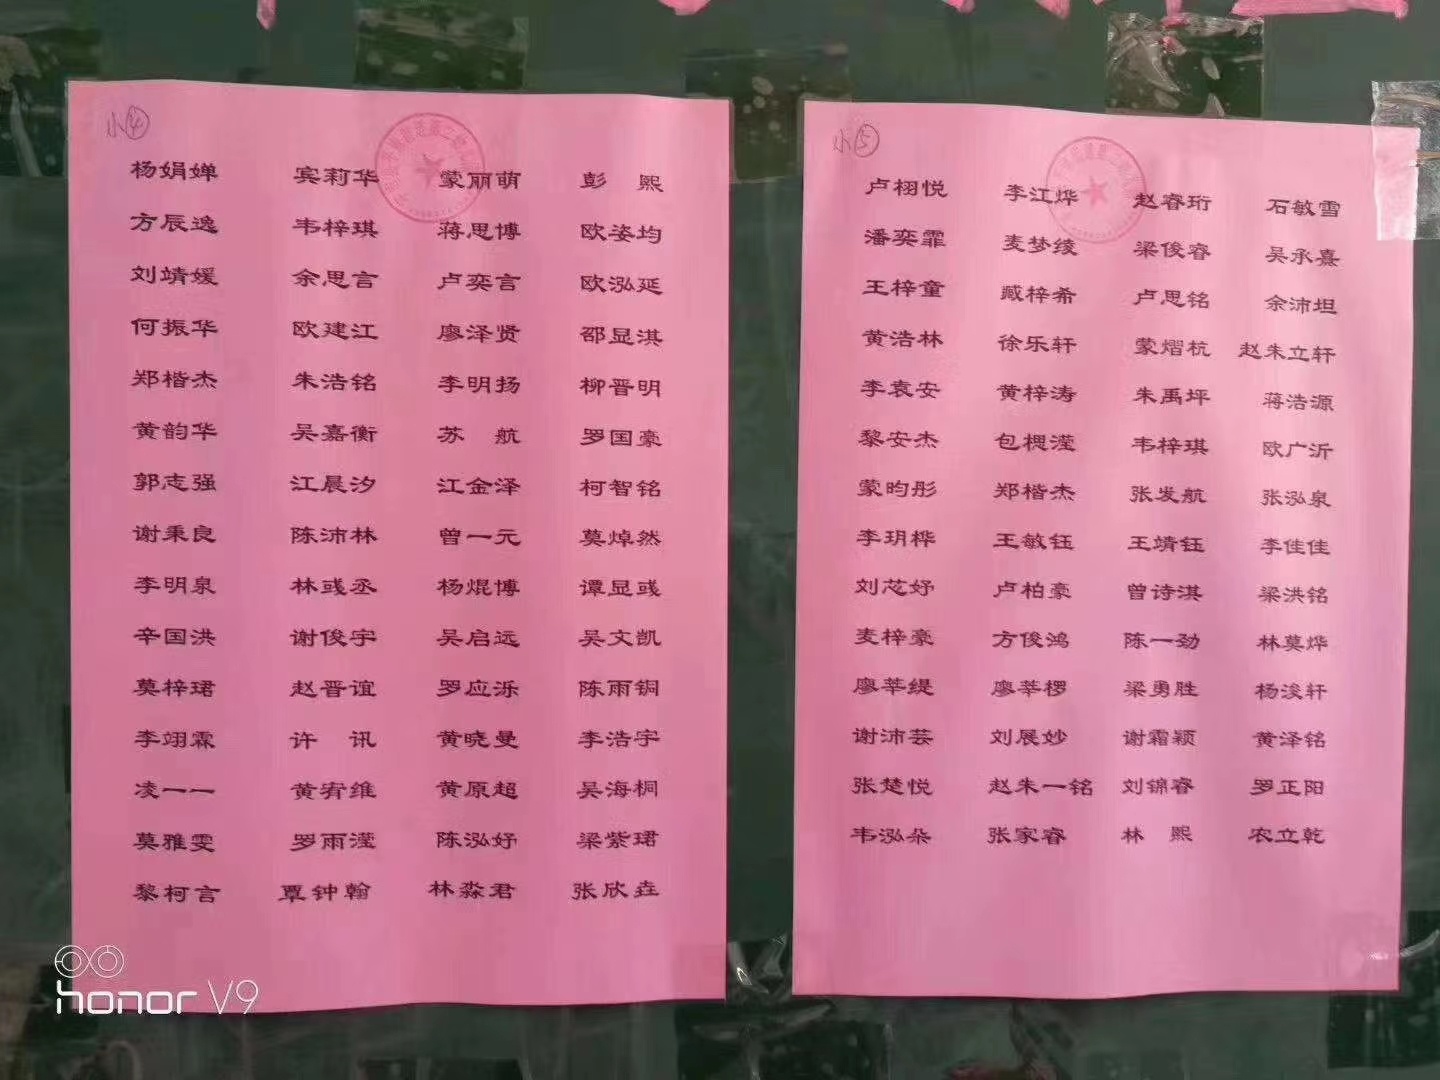 小④
杨娟婵 宾莉华 蒙丽萌 彭熙
方辰逸 韦梓琪 蒋思博 欧姿均
刘靖媛 余思言 卢奕言 欧泓延
何振华 欧建江 廖泽贤 邵显淇
郑楷杰 朱浩铭 李明扬 柳晋明
黄韵华 吴嘉衡 苏航 罗国豪
郭志强 江晨汐 江金泽 柯智铭
谢秉良 陈沛林 曾一元 莫焯然
李明泉 林彧丞 杨焜博 谭显彧
辛国洪 谢俊宇 吴启远 吴文凯
莫梓珺 赵晋谊 罗应泺 陈雨铜
李翊霖 许讯 黄晓曼 李浩宇
凌一一 黄宥维 黄原超 吴海桐
莫雅雯 罗雨滢 陈泓妤 梁紫珺
黎柯言 覃钟翰 林淼君 张欣垚
小⑤
卢栩悦 李江烨 赵睿珩 石敏雪
潘奕霏 麦梦绫 梁俊睿 吴承熹
王梓童 臧梓希 卢思铭 余沛坦
黄浩林 徐乐轩 蒙熠杭 赵朱立轩
李袁安 黄梓涛 朱禹坪 蒋浩源
黎安杰 包楒滢 韦梓琪 欧广沂
蒙昀彤 郑楷杰 张发航 张泓泉
李玥桦 王敏钰 王靖钰 李佳佳
刘芯妤 卢柏豪 曾诗淇 梁洪铭
麦梓豪 方俊鸿 陈一劲 林莫烨
廖莘缇 廖莘椤 梁勇胜 杨浚轩
谢沛芸 刘展妙 谢霜颖 黄泽铭
张楚悦 赵朱一铭 刘锦睿 罗正阳
韦泓朵 张家睿 林熙 农立乾
honor V9